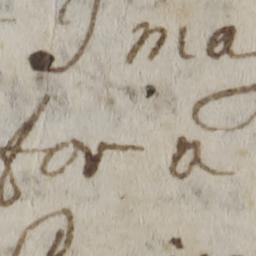 I ma
for a